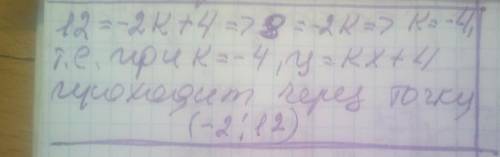 12=-2к+4=>8=-2к=> к=-4,
т.е. при к=-4, у=кх+4
проходит через точку
(-2;12)